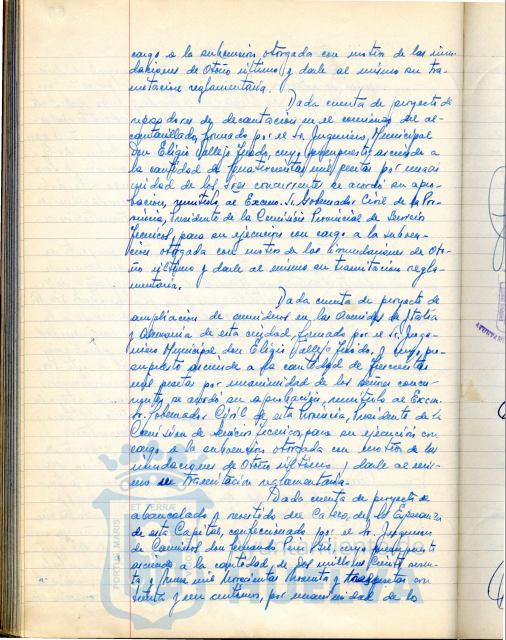 cargo a la subvencion otorgada con motivo de las inun-
daciones de Otoño ultimo y darle al mismo su tra-
mitacion reglamentaria.
Dada cuenta de proyecto de
decantacion en el comienzo del al-
cantarillado, formado por el Sr. Ingeniero Municipal
Don Eligio Vallejo Jurado, cuyo presupuesto asciende a
la cantidad de mil pesetas por unani-
midad de los Sres concurrentes se acordó su apro-
bacion, remitirlo al Excmo. Sr. Gobernador Civil de la Pro-
vincia, Presidente de la Comisión Provincial de Servicios
Tecnicos, para su ejecucion con cargo a la subven-
cion otorgada con motivo de las inundaciones de Oto-
ño ultimo y darle al mismo su tramitacion regla-
mentaria.
Dada cuenta de proyecto de
ampliacion de en las Avenidas de Italia
y Alemania de esta ciudad, formado por el Sr. Inge-
niero Municipal don Eligio Vallejo Jurado, y cuyo pre-
supuesto asciende a la cantidad de
mil pesetas por unanimidad de los señores concu-
rrentes, se acordó su aprobacion, remitirlo al Excmo.
Sr. Gobernador Civil de esta Provincia, Presidente de la
Comision de Servicios Tecnicos, para su ejecución con
cargo a la subvencion otorgada con motivo de las
inundaciones de Otoño ultimo, y darle al mis-
mo su tramitacion reglamentaria.
Dada cuenta de proyecto de
y revestido del Cabezo de la Esperanza
de esta Capital, confeccionado por el Sr. Ingeniero
de Caminos don Fernando cuyo presupuesto
asciende a la cantidad de dos millones ciento
ta y nueve mil novecientas noventa y tres pesetas con
y un centimos, por unanimidad de lo
PORTUS MARIS ET TERRAE